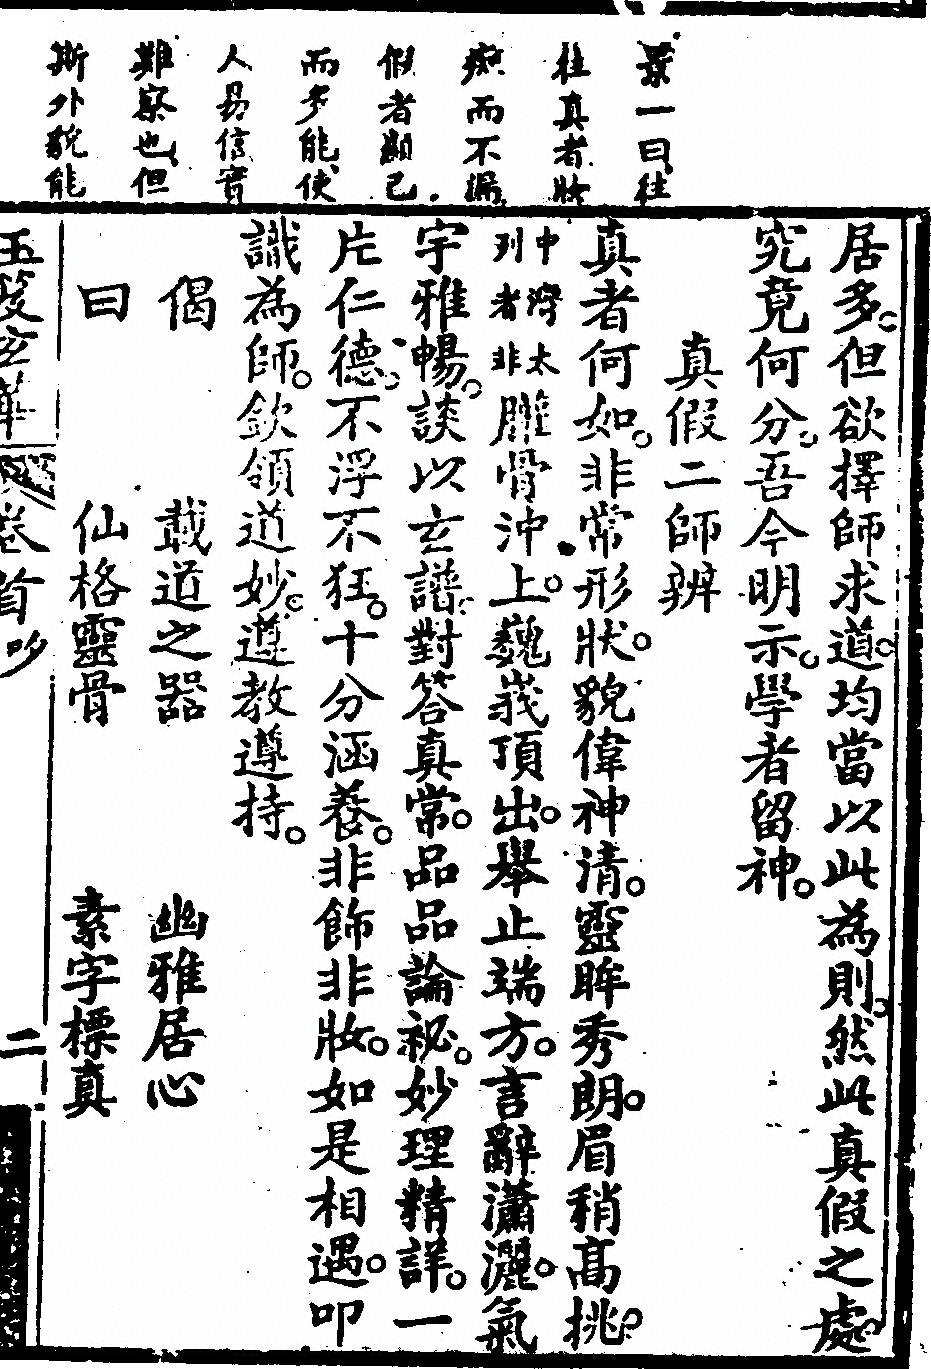 景一曰往
往真者將
癡而不揚
假者顯己
而多能使
人易信實
難察也但
斯外貌能
居多但欲擇師求道均當以此為則然此真假之處
究竟何分吾今明示學者留神
真假二師辨
真者何如非常形狀貌偉神清靈眸秀朗眉稍高挑
中灣太
列者非
骨沖上巍峩頂出舉止端方言辭瀟灑氣
宇雅暢談以玄譜對答真常品品論祕妙理精詳一
片仁德不浮不狂十分涵養非飾非妝如是相遇叩
識為師欽領道妙遵教遵持
偈 蕺道之器 幽雅居心
曰 仙格靈骨 素字標真
玄華 卷首 二